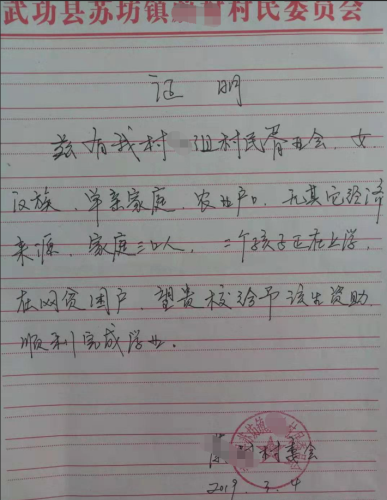 武功县苏坊镇 村民委员会
证 明
兹有我村 组村民 会、女、
汉族、单亲家庭、农业户口、无其它经济
来源、家庭三口人、二个孩子正在上学,
在网贫困户,望贵校给予该生资助,
顺利完成学业。
村委会
2019. 3. 4